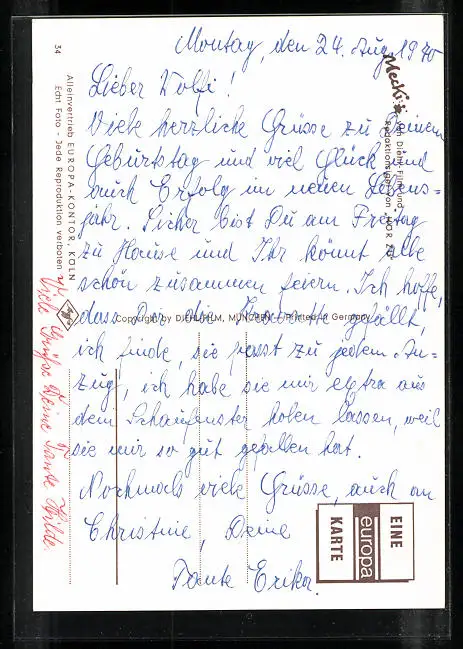 Montag, den 24. Aug. 1970
Lieber Wolfi!
Viele herzliche Grüsse zu Deinem
Geburtstag und viel Glück und
auch Erfolg im neuen Lebens-
jahr. Sicher bist Du am Freitag
zu Hause und Ihr könnt alle
schön zusammen feiern. Ich hoffe,
dass Dir die gefällt,
ich finde, sie passt zu jedem An-
zug, ich habe sie mir extra aus
dem Schaufenster holen lassen, weil
sie mir so gut gefallen hat.
Nochmals viele Grüsse, auch an
Christine, Deine
Tante Erika.
Viele Grüße Deine Tante Hilde.
34
Alleinvertrieb EUROPA-KONTOR, KÖLN
Echt Foto - Jede Reproduktion verboten
Mecki
Diehl-Film und
Redaktionsigel von HÖR ZU
Copyright by DIEHLFILM, MÜNCHEN - Printed in Germany
EINE
europa
KARTE